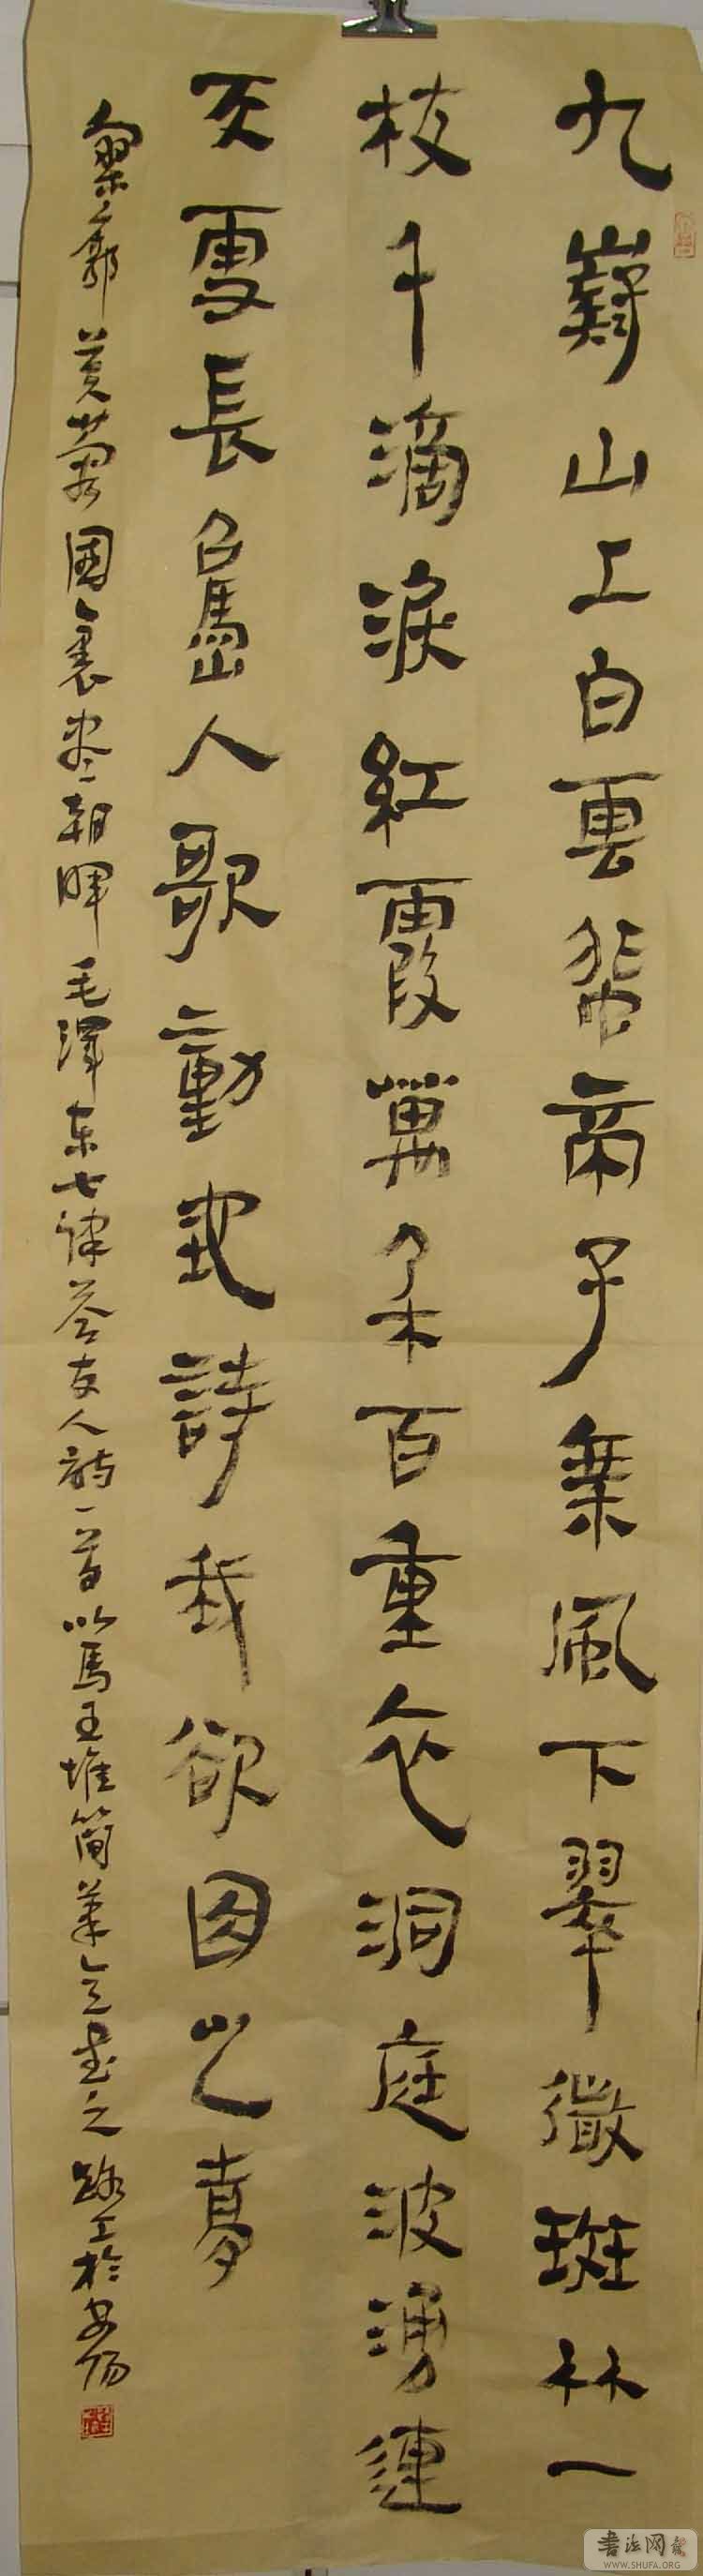 九嶷山上白雲飛帝子乘風下翠微斑竹一
枝千滴淚紅霞萬朵百重衣洞庭波湧連
天雪長島人歌動地詩我欲因之夢
寥廓芙蓉國裏尽朝暉 毛澤东七律答友人詩一首以馬王堆簡筆意書之 路工於安陽
書法网
WWW.SHUFA.ORG